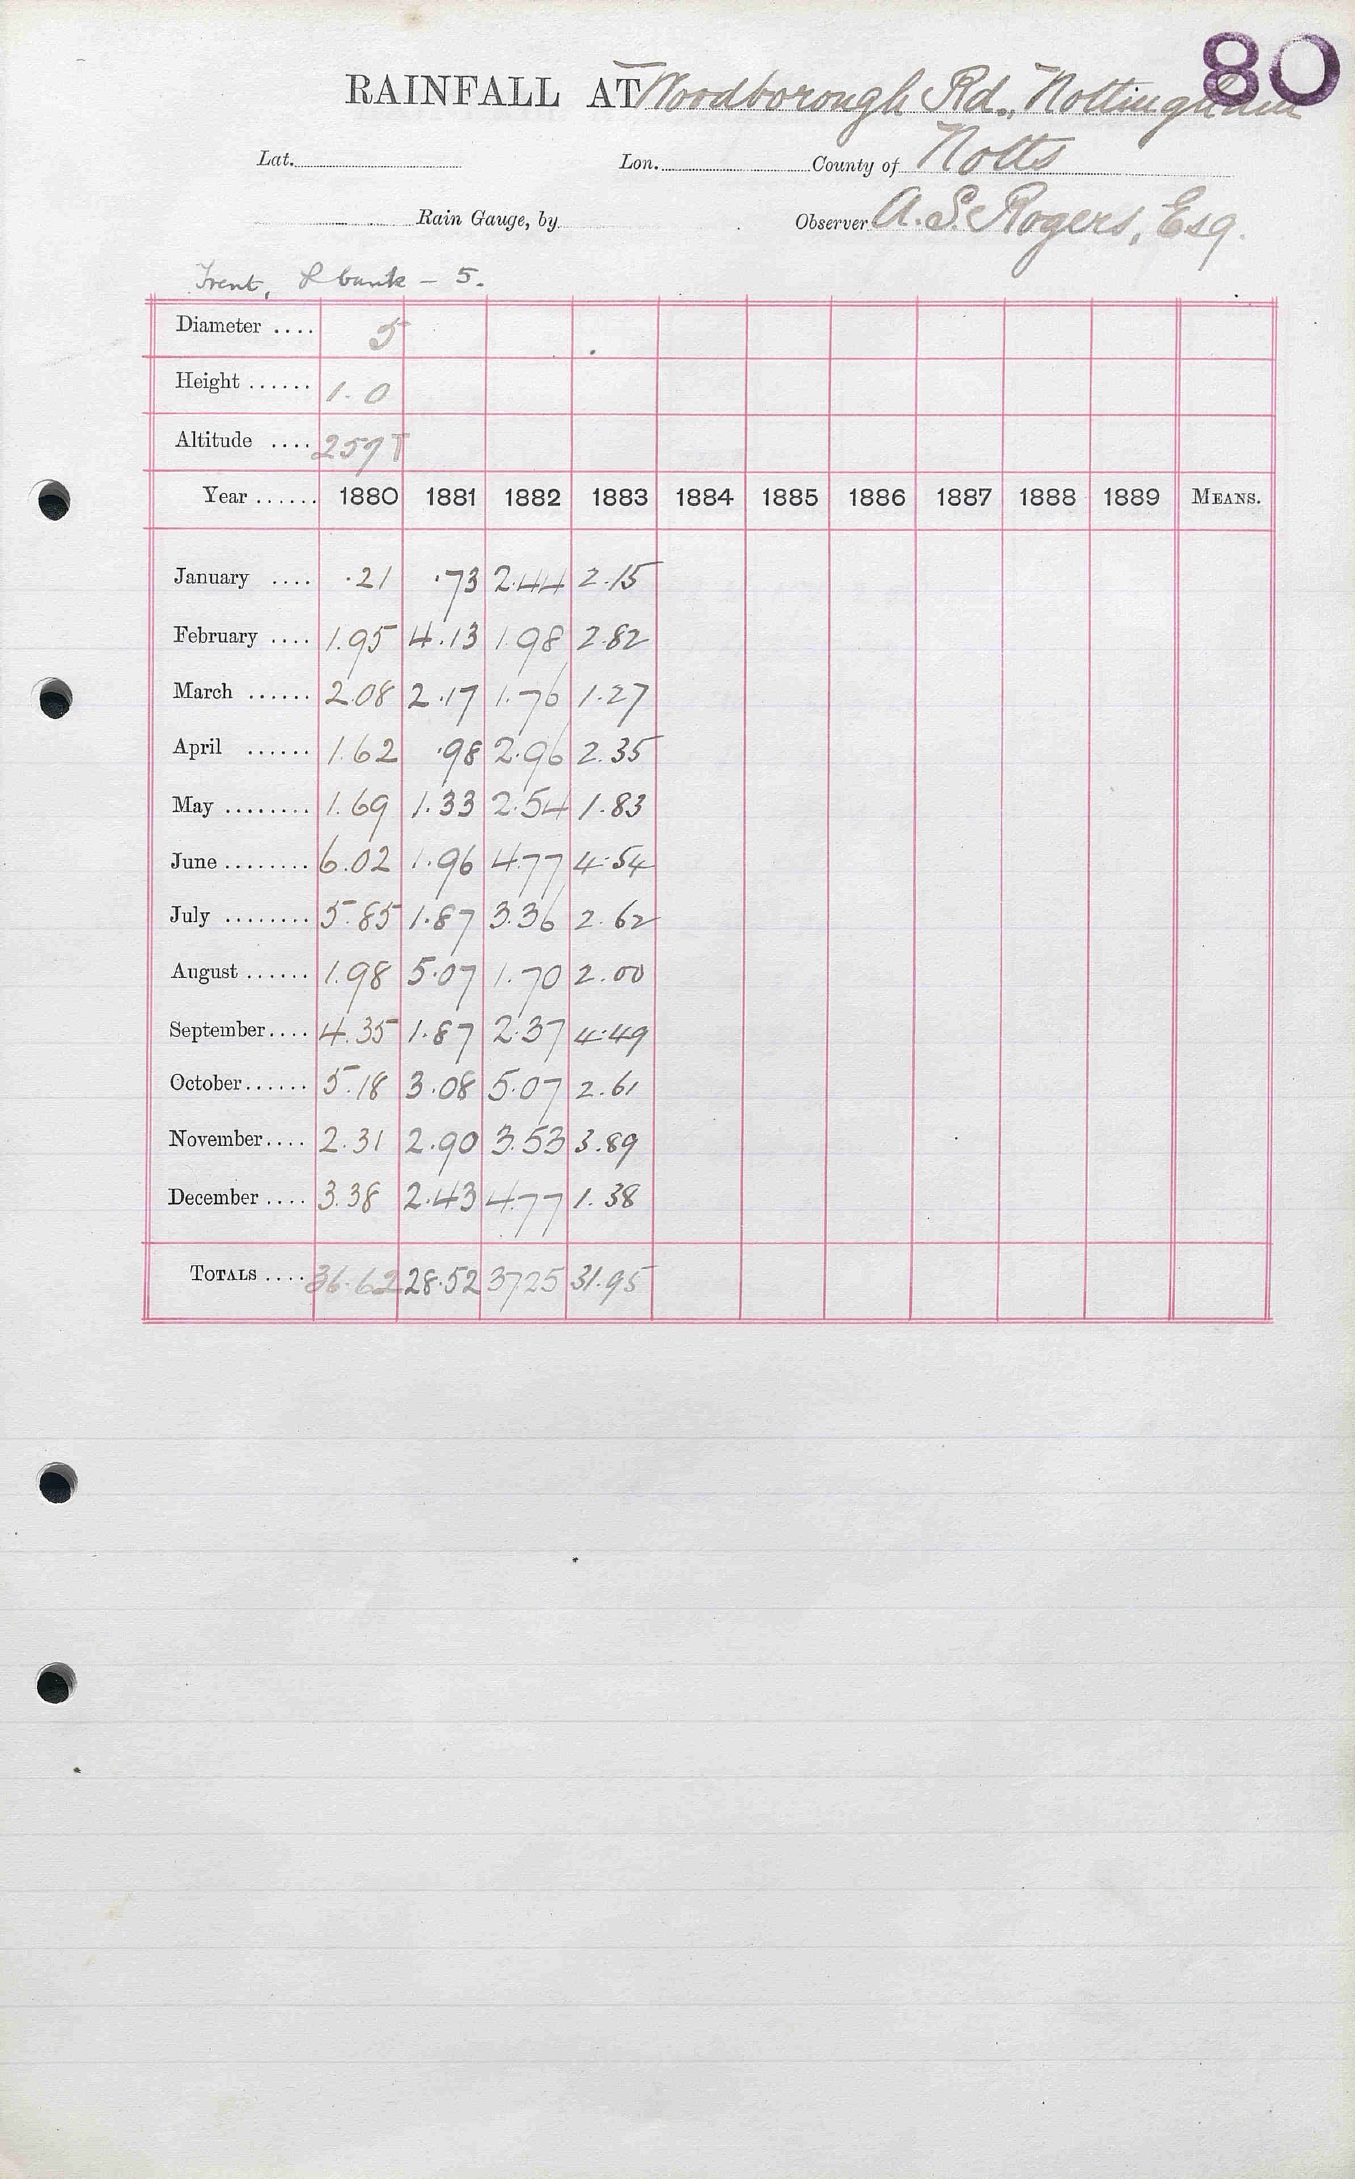 80
RAINFALL AT Woodborough Rd., Nottingham
Lat. Lon. County of Notts
Rain Gauge, by Observer A. S. Rogers, Esq.
Trent, L bank – 5.
Diameter .... 5
Height ...... 1.0
Altitude .... 257 T
Year ...... 1880 1881 1882 1883 1884 1885 1886 1887 1888 1889 MEANS.
January .... .21 .73 2.44 2.15
February .... 1.95 4.13 1.98 2.82
March ...... 2.08 2.17 1.76 1.27
April ...... 1.62 .98 2.96 2.35
May ........ 1.69 1.33 2.54 1.83
June ........ 6.02 1.96 4.77 4.54
July ........ 5.85 1.87 3.36 2.62
August ...... 1.98 5.07 1.70 2.00
September.... 4.35 1.87 2.37 4.49
October...... 5.18 3.08 5.07 2.61
November.... 2.31 2.90 3.53 3.89
December .... 3.38 2.43 4.77 1.38
TOTALS .... 36.62 28.52 37 25 31.95